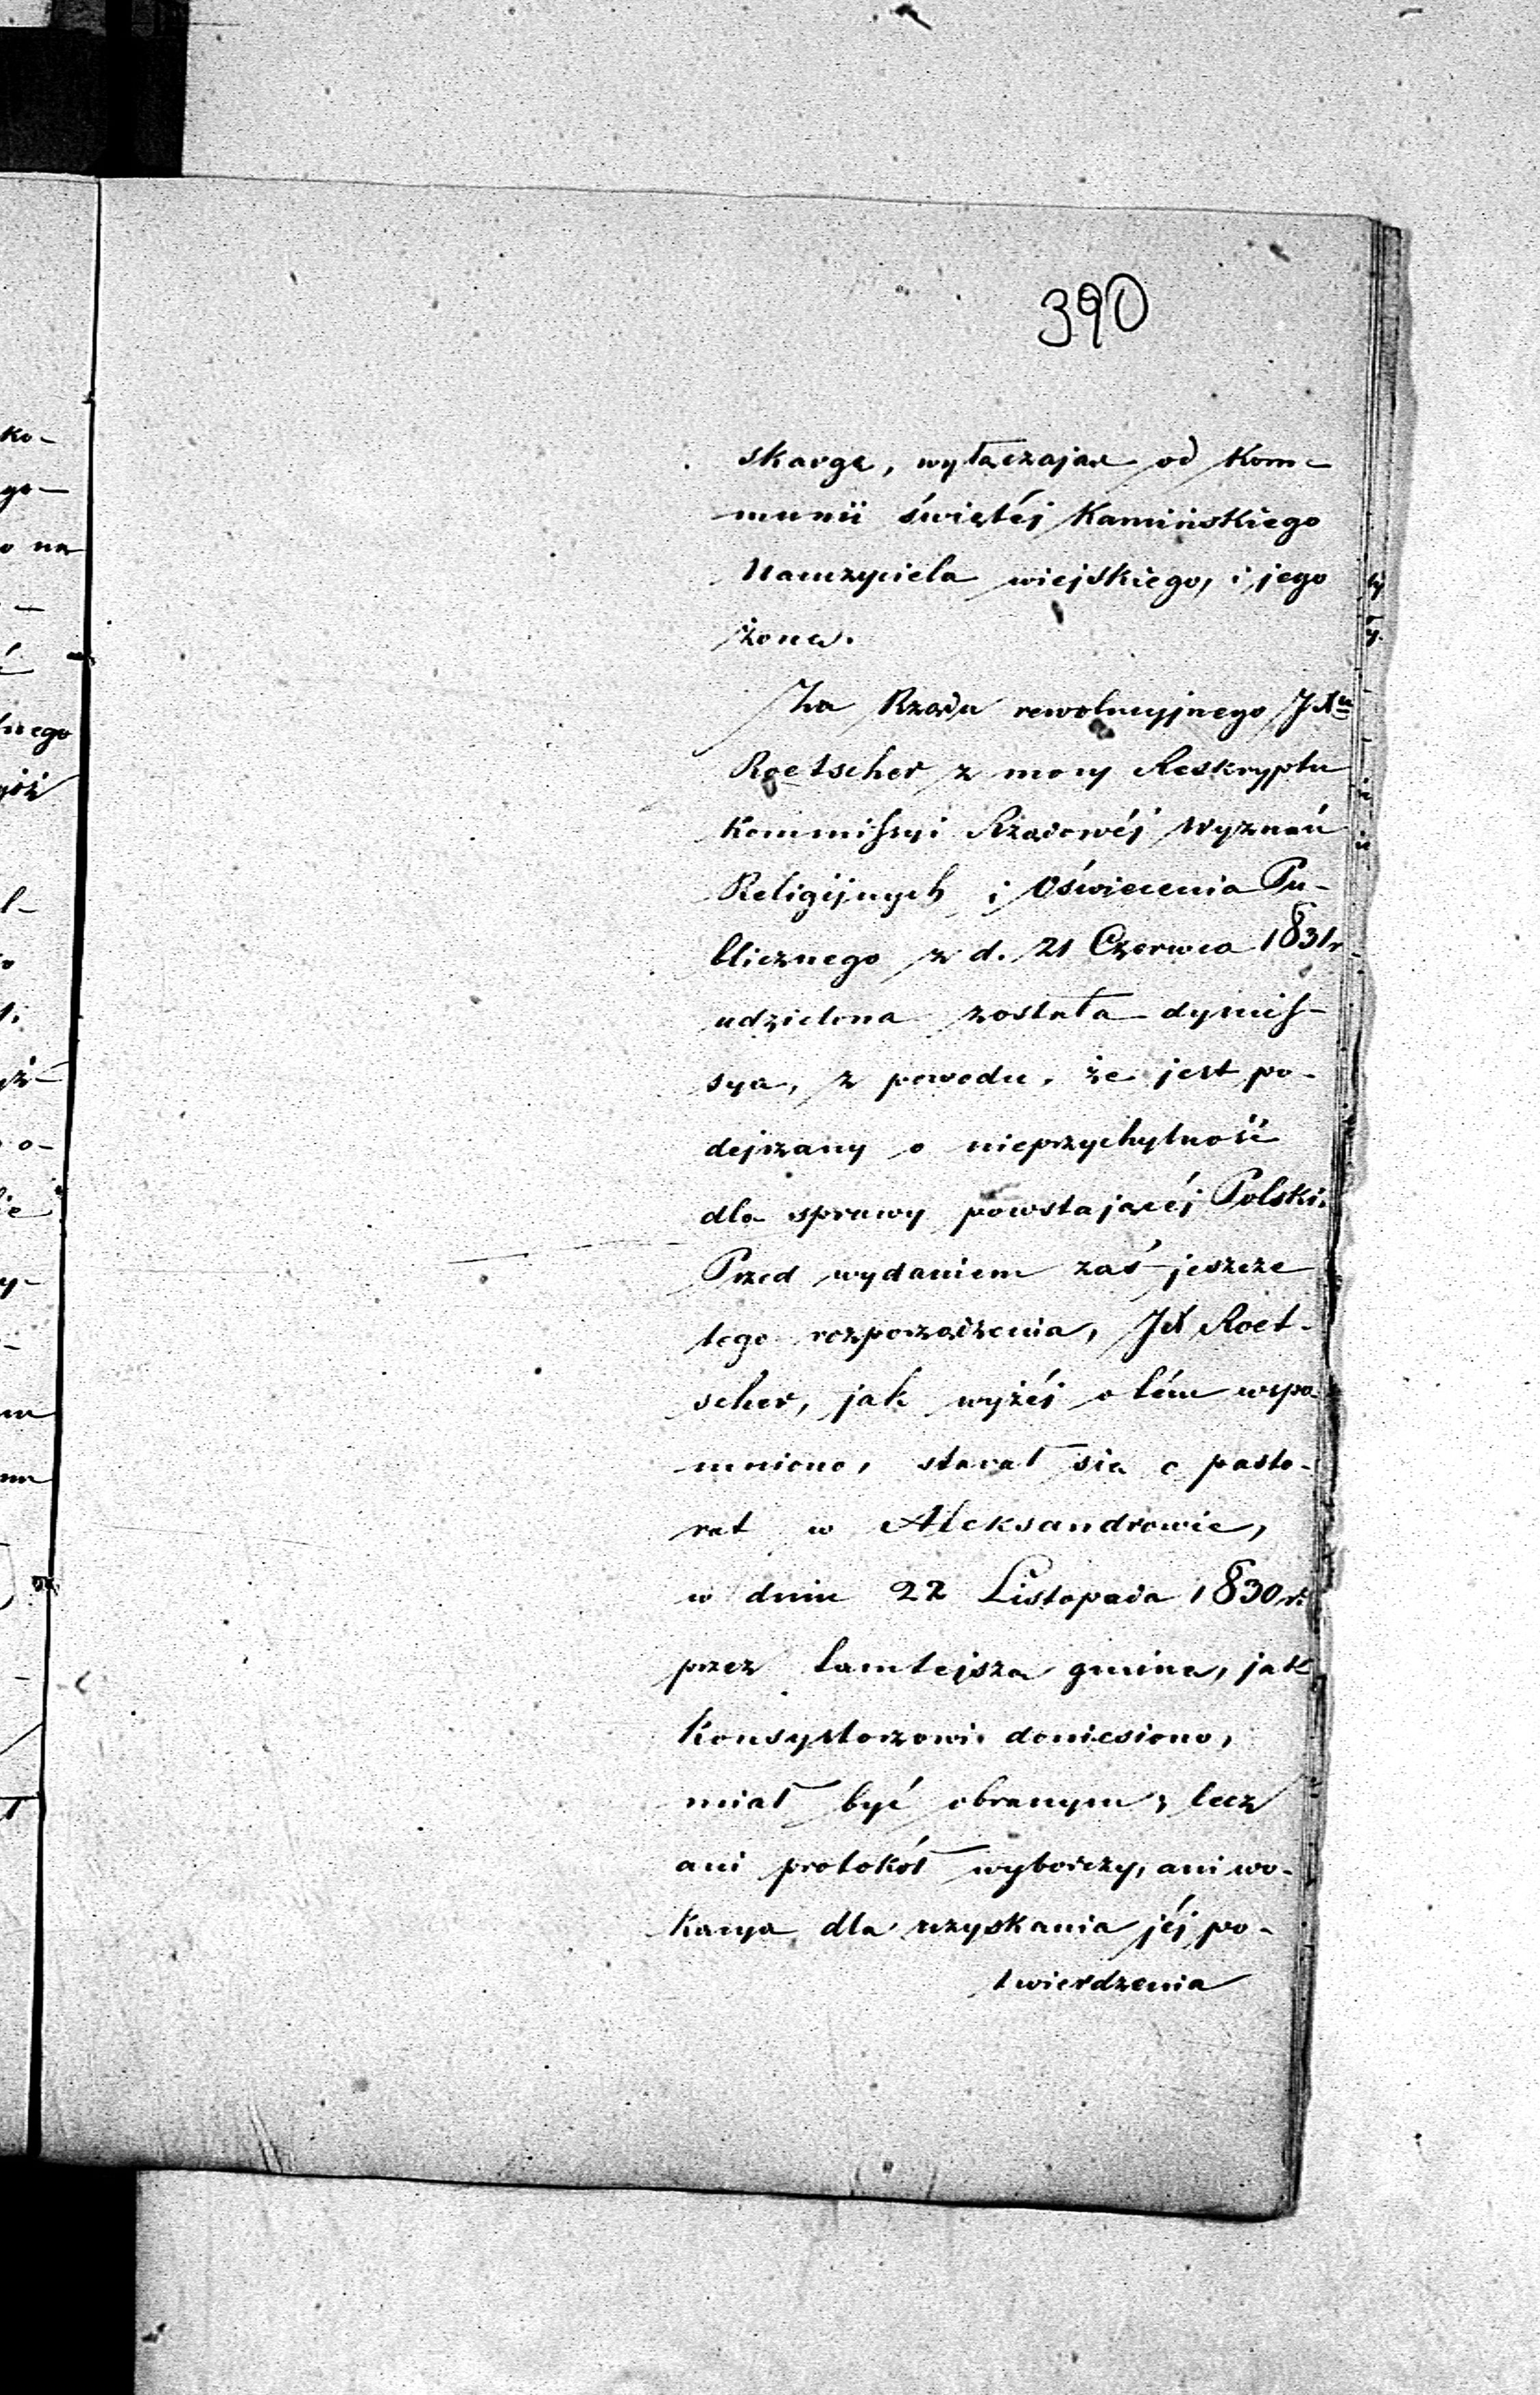 390
skargę, wyłączając od Kom-
munii świętéj Kamińskiego
Nauczyciela wiejskiego, i jego
żonę.
Za Rządu rewolucyjnego JX<sup>u</sup>
Roetscher z mocy Reskryptu
Kommissyi Rządowéj Wyznań
Religijnych i Oświecenia Pu-
blicznego z d. 21 Czerwca 1831r
udzielona została dymis-
sya, z powodu, że jest po-
dejrzany o nieprzychylność
dla sprawy powstającéj Polski.
Przed wydaniem zaś jeszcze
tego rozporządzenia, JX Roet-
scher, jak wyżéj o tém wspo-
mniono, starał się o pasto-
rat w Aleksandrowie,
w dniu 22 Listopada 1830 r.
przez tamtejszą gminę, jak
Konsystorzowi doniesiono,
miał być obranym, lecz
ani protokół wyborczy, ani wo-
kacya dla uzyskania jéj po-
twierdzenia